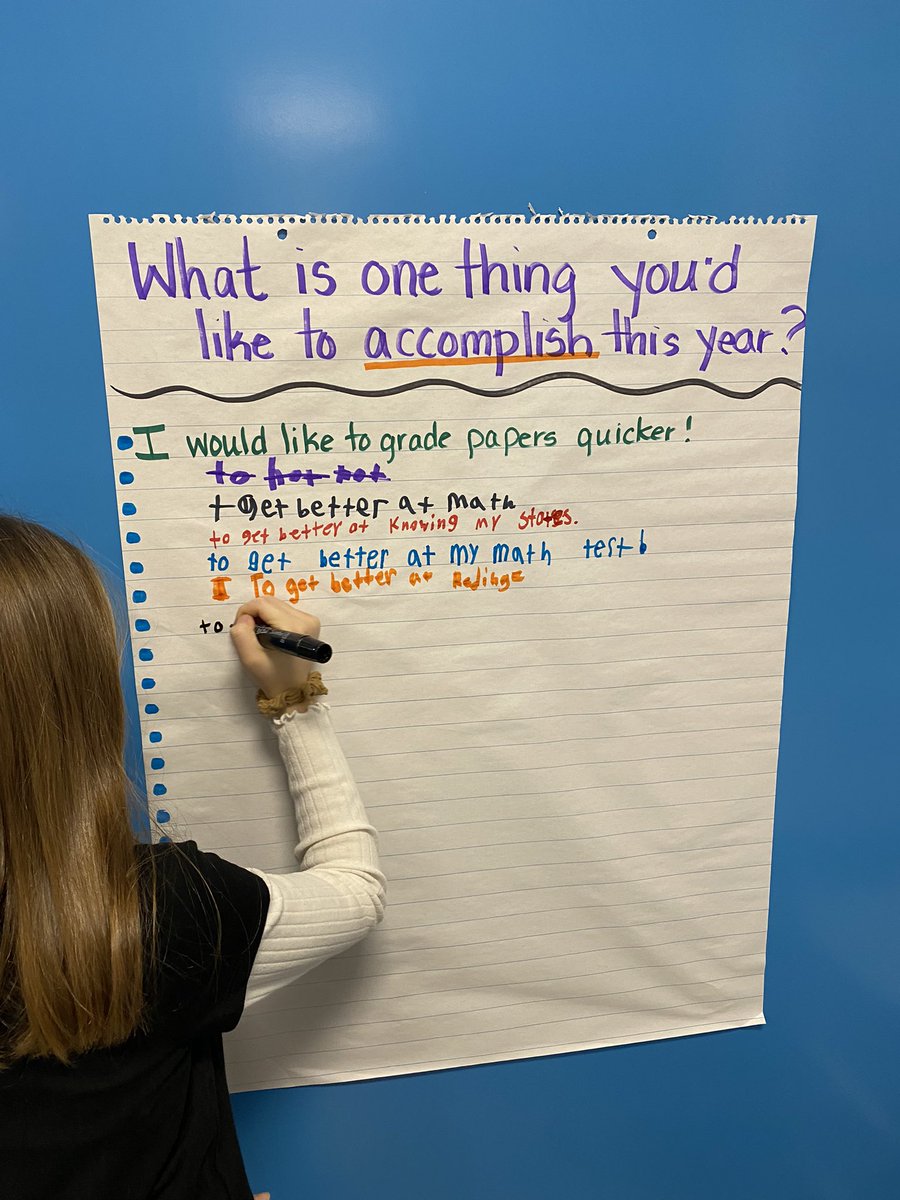 What is one thing you'd
like to accomplish this year?
I would like to grade papers quicker!
to
to get better at math
to get better at Knowing my states.
to get better at my math test
I To get better at Redinge
to